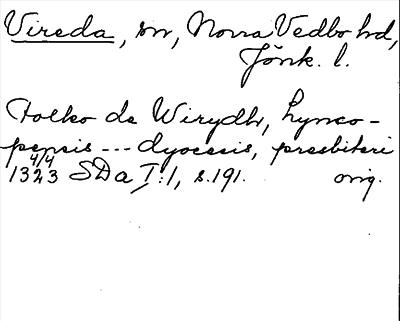 Vireda, sn, Norra Vedbo hd,
Jönk. l.
Folko de Wirydh, Lynco-
pensis --- dyocesis, presbiteri
1323 4/4 SDa I:1, s.191. orig.